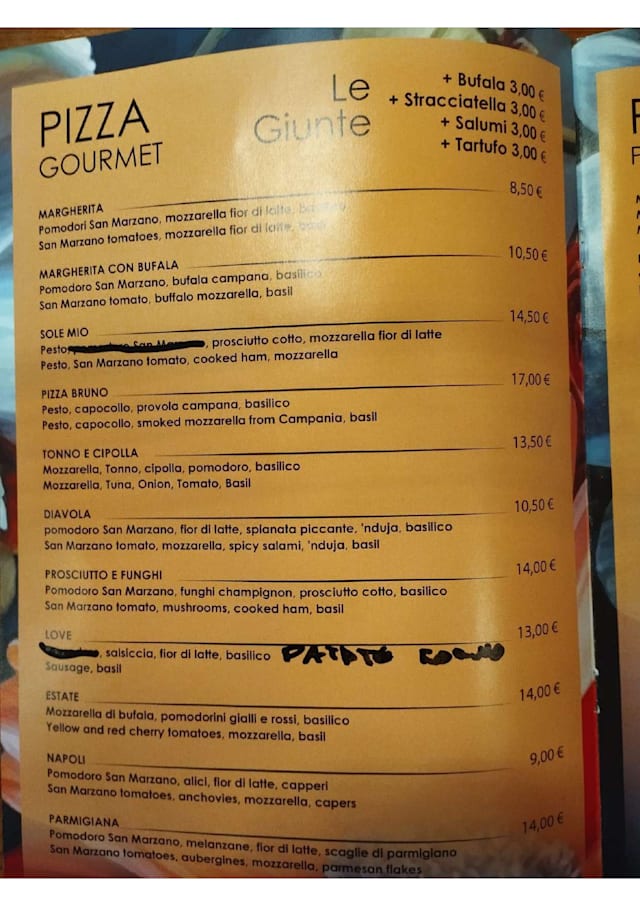 PIZZA
GOURMET
Le
Giunte
+ Bufala 3,00 €
+ Stracciatella 3,00 €
+ Salumi 3,00 €
+ Tartufo 3,00 €
MARGHERITA 8,50 €
Pomodori San Marzano, mozzarella fior di latte, basilico
San Marzano tomatoes, mozzarella fior di latte, basil
MARGHERITA CON BUFALA 10,50 €
Pomodoro San Marzano, bufala campana, basilico
San Marzano tomato, buffalo mozzarella, basil
SOLE MIO 14,50 €
Pesto, prosciutto cotto, mozzarella fior di latte
Pesto, San Marzano tomato, cooked ham, mozzarella
PIZZA BRUNO 17,00 €
Pesto, capocollo, provola campana, basilico
Pesto, capocollo, smoked mozzarella from Campania, basil
TONNO E CIPOLLA 13,50 €
Mozzarella, Tonno, cipolla, pomodoro, basilico
Mozzarella, Tuna, Onion, Tomato, Basil
DIAVOLA 10,50 €
pomodoro San Marzano, fior di latte, spianata piccante, 'nduja, basilico
San Marzano tomato, mozzarella, spicy salami, 'nduja, basil
PROSCIUTTO E FUNGHI 14,00 €
Pomodoro San Marzano, funghi champignon, prosciutto cotto, basilico
San Marzano tomato, mushrooms, cooked ham, basil
LOVE 13,00 €
, salsiccia, fior di latte, basilico PATATE
Sausage, basil
ESTATE 14,00 €
Mozzarella di bufala, pomodorini gialli e rossi, basilico
Yellow and red cherry tomatoes, mozzarella, basil
NAPOLI 9,00 €
Pomodoro San Marzano, alici, fior di latte, capperi
San Marzano tomatoes, anchovies, mozzarella, capers
PARMIGIANA 14,00 €
Pomodoro San Marzano, melanzane, fior di latte, scaglie di parmigiano
San Marzano tomatoes, aubergines, mozzarella, parmesan flakes